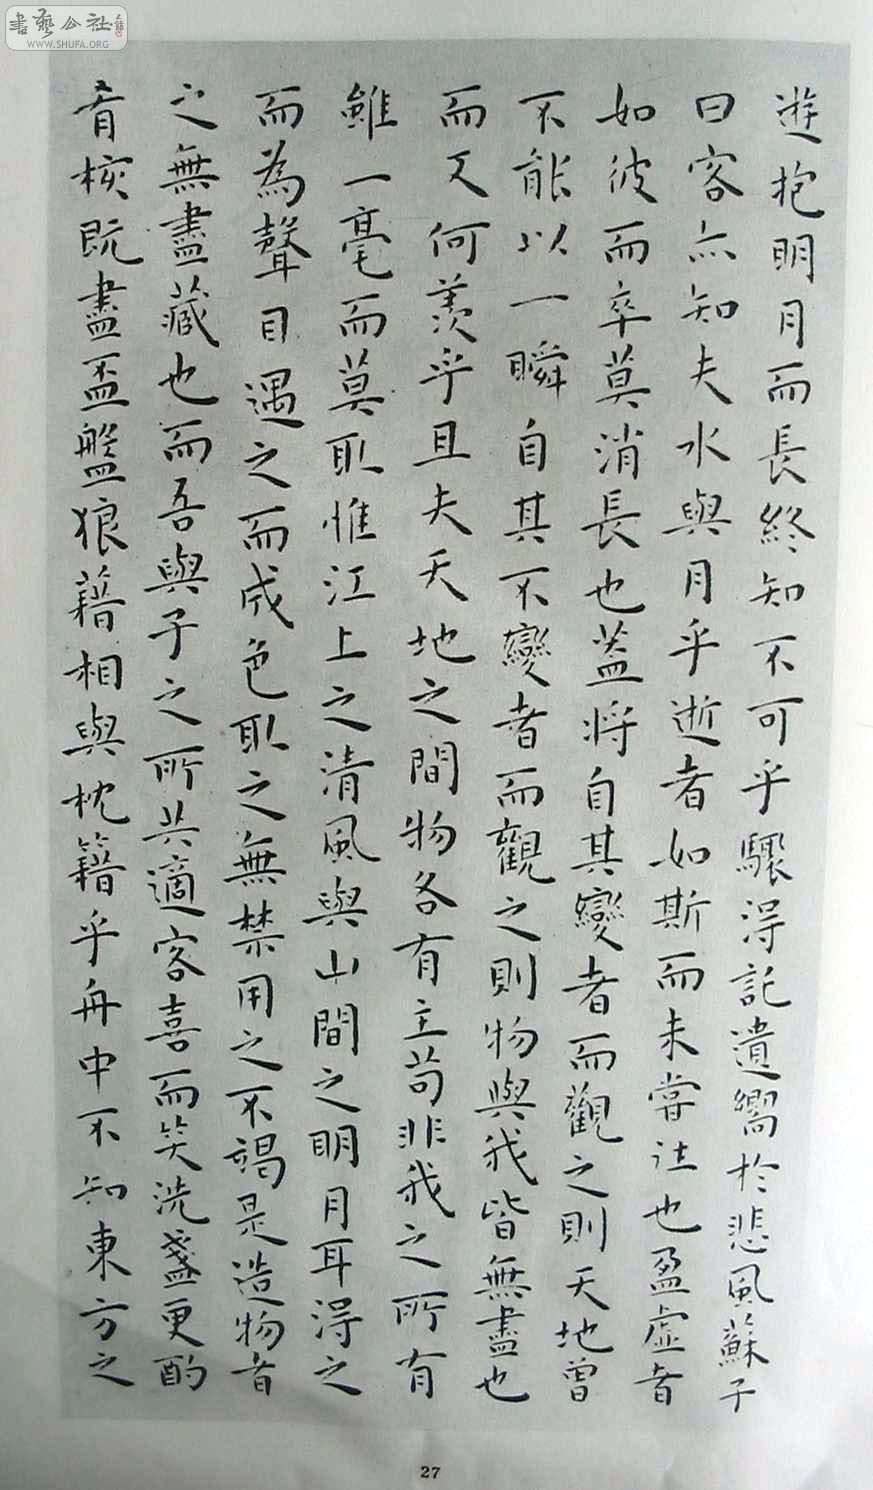 遊抱明月而長終知不可乎驟得託遺嚮於悲風蘇子
曰客亦知夫水與月乎逝者如斯而未嘗往也盈虛者
如彼而卒莫消長也蓋将自其變者而觀之則天地曾
不能以一瞬自其不變者而觀之則物與我皆無盡也
而又何羨乎且夫天地之間物各有主苟非我之所有
雖一毫而莫取惟江上之清風與山間之明月耳得之
而為聲目遇之而成色取之無禁用之不竭是造物者
之無盡藏也而吾與子之所共適客喜而笑洗盞更酌
肴核既盡盃盤狼藉相與枕籍乎舟中不知東方之
書藝公社
WWW.SHUFA.ORG
27